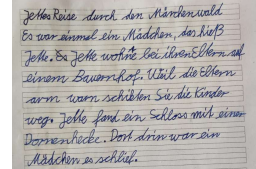 Jettes Reise durch den Märchenwald
Es war einmal ein Mädchen, das hieß
Jette. Es Jette wohnt bei ihren Eltern auf
einem Bauernhof. Weil die Eltern
arm warn schikten Sie die Kinder
weg. Jette fand ein Schloss mit einer
Dornenhecke. Dort drin war ein
Mädchen es schlief.